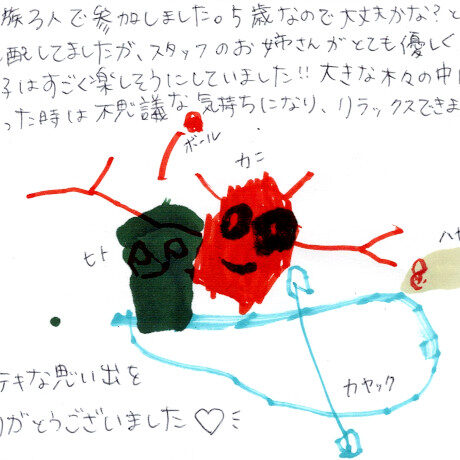 族3人で参加しました。5歳なので大丈夫かな?と
配してましたが、スタッフのお姉さんがとても優しく
子はすごく楽しそうにしていました!!大きな木々の中に
った時は不思議な気持ちになり、リラックスできま
ボール
カニ
ヒト
ハ
カヤック
テキな思い出を
りがとうございました♡